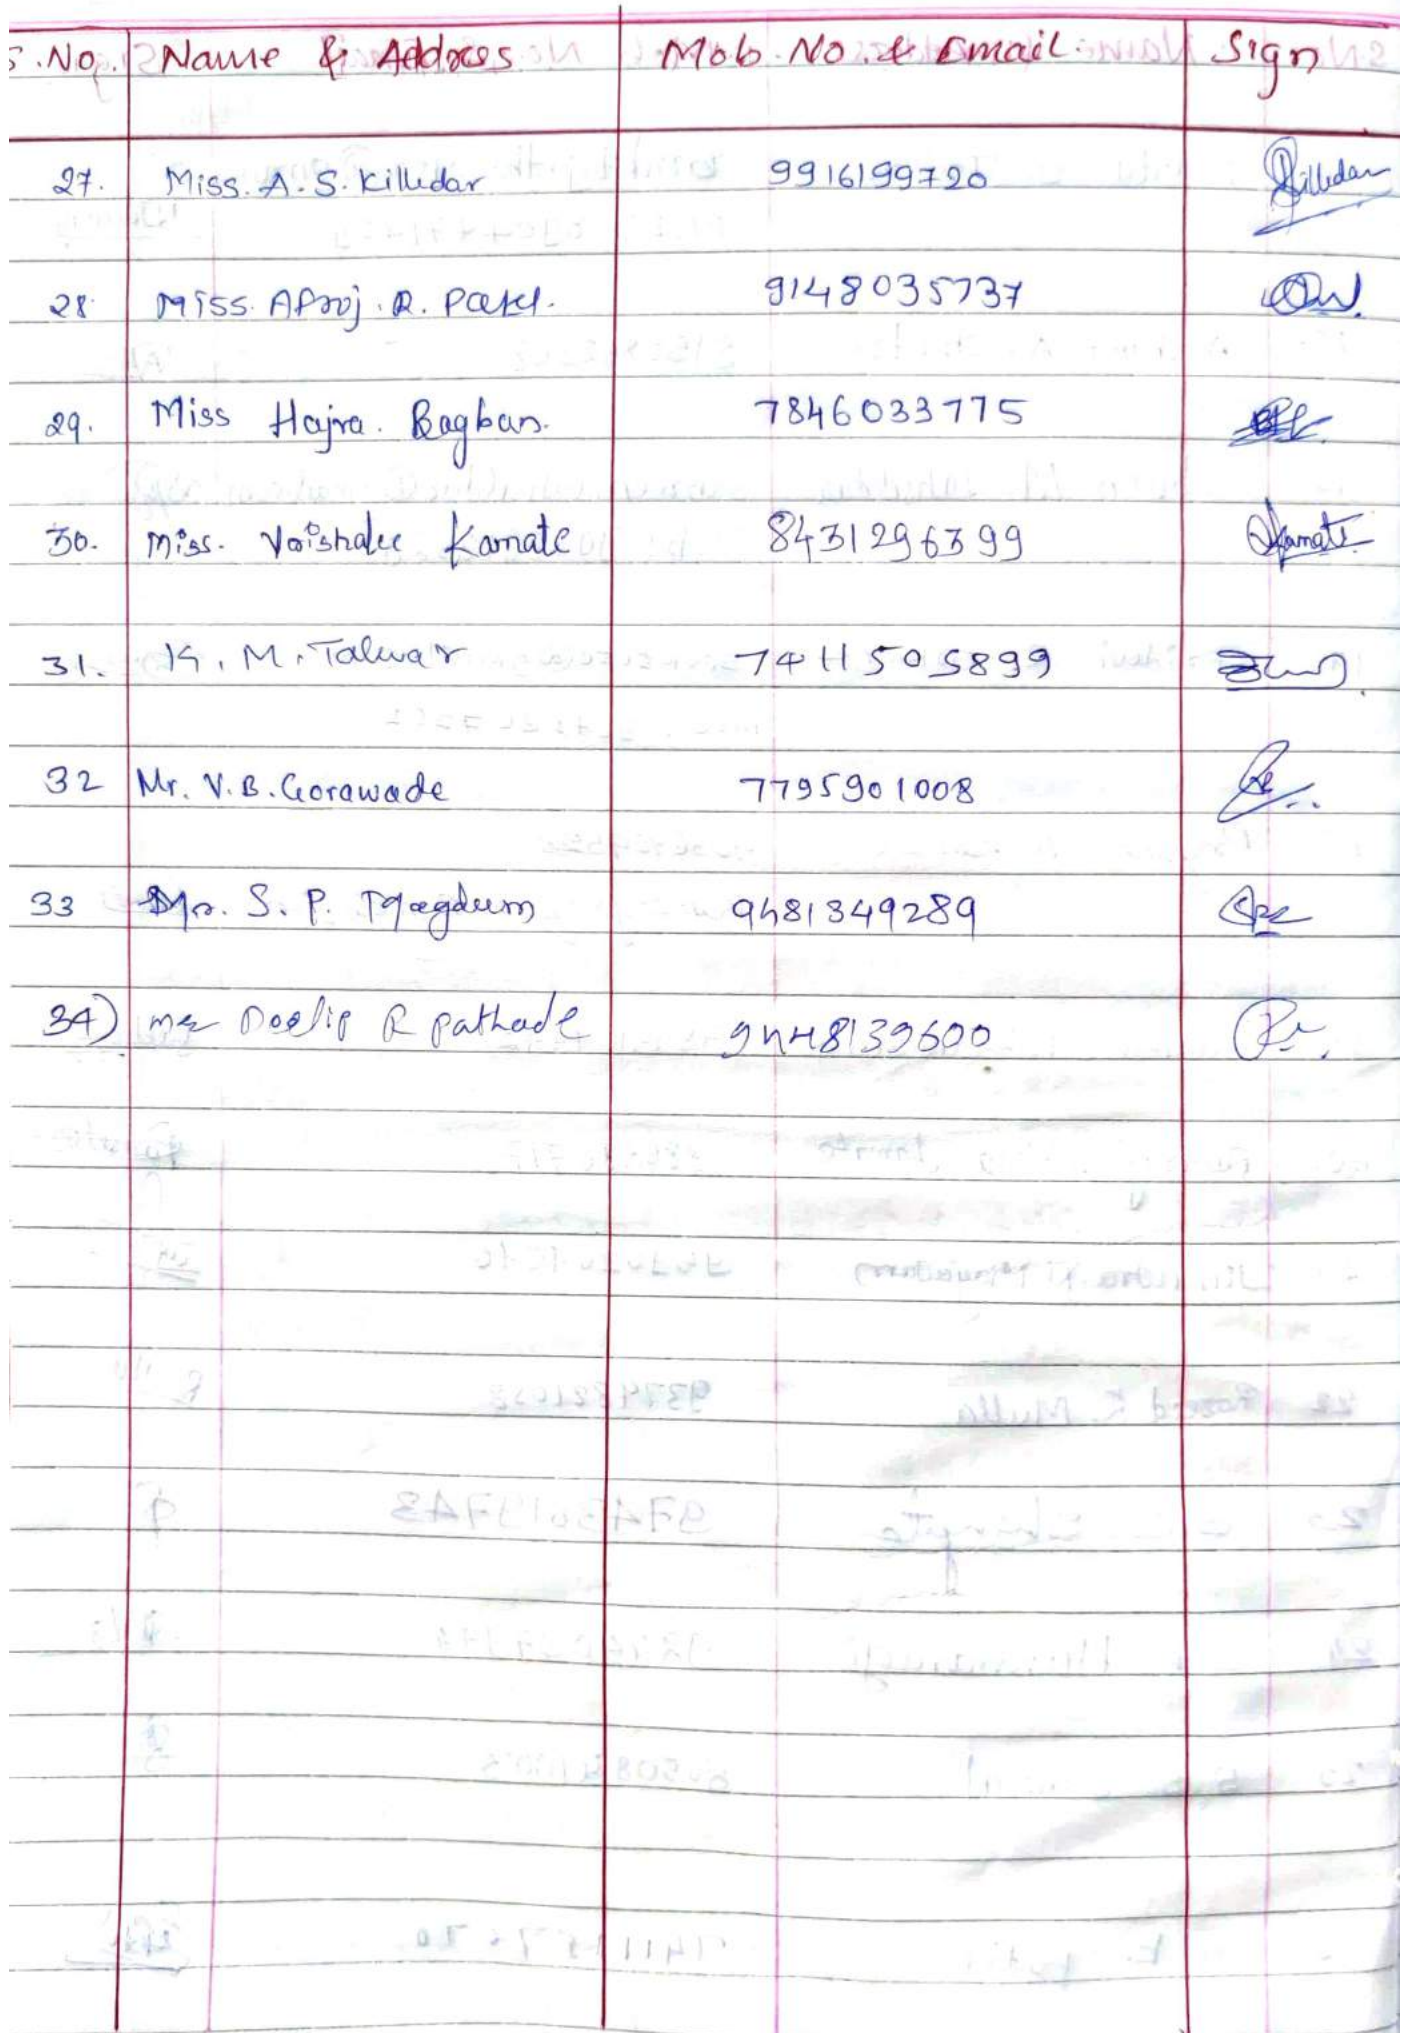 S.No. Name & Address Mob. No. & Email. Sign
27. Miss. A. S. Killedar 9916199720 Killedar
28. Miss. Afroj. R. Patel. 9148035737
29. Miss Hajra. Bagban. 7846033775
30. Miss. Vaishalee Kamate 8431296399 Kamate
31. K. M. Talwar 7411505899
32 Mr. V. B. Gorawade 7795901008
33 Mr. S. P. Magdum 9481349289
34) Mr R pathade 9448139600